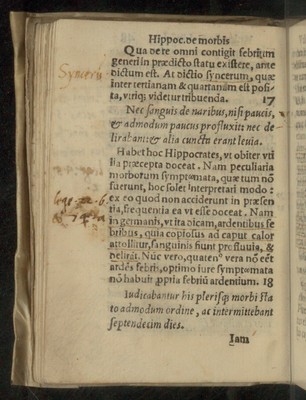 Hippoc. de morbis
Qua de re omni contigit febrium
generi in prædicto statu existere, ante
dictum est. At dictio syncerum, quæ
inter tertianam & quartanam est posi
ta, utriq; videtur tribuenda. 17
Syncerū
Nec sanguis de naribus, nisi paucis,
& admodum paucus profluxit: nec de
lirabant: & alia cuncta erant leuia.
Habet hoc Hippocrates, vt obiter vti
lia præcepta doceat. Nam peculiaria
morborum symptomata, quæ tum nō
fuerunt, hoc solet interpretari modo:
ex eo quod non acciderunt in præsen
tia, frequentia ea vt esse doceat. Nam
in germanis, vt ita dicam, ardentibus fe
bribus, quia copiosus ad caput calor
attollitur, sanguinis fiunt profluuia, &
delirāt. Nūc vero, quatenº vera nō eēt
ardēs febris, optimo iure symptomata
nō habuit ꝓpria febriū ardentium. 18
Iudicabantur his plerisq; morbi sta
to admodum ordine, ac intermittebant
septendecim dies.
Iam